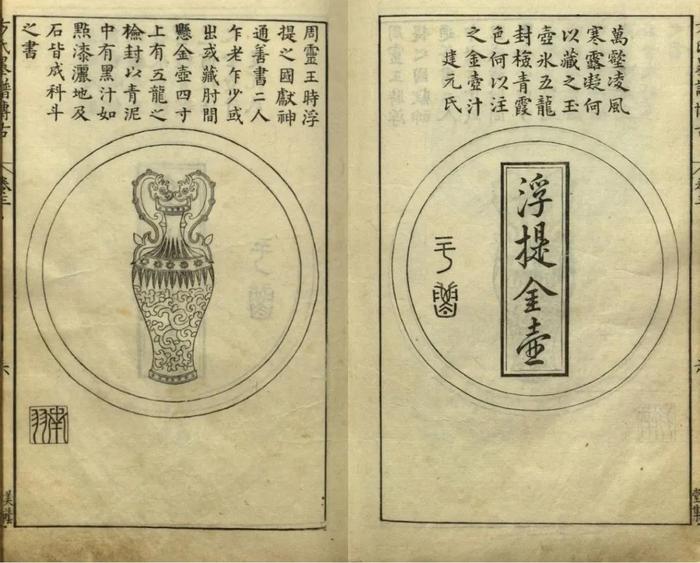 萬壑凌風
寒露凝何
以藏之玉
壺氷五龍
封檢青霞
色何以注
之金壺汁
建元氏
浮提金壺
于魯
周靈王時浮
提之國獻神
通善書二人
乍老乍少或
出或藏肘間
懸金壺四寸
上有五龍之
檢封以青泥
中有黑汁如
點漆灑地及
石皆成科斗
之書
南羽